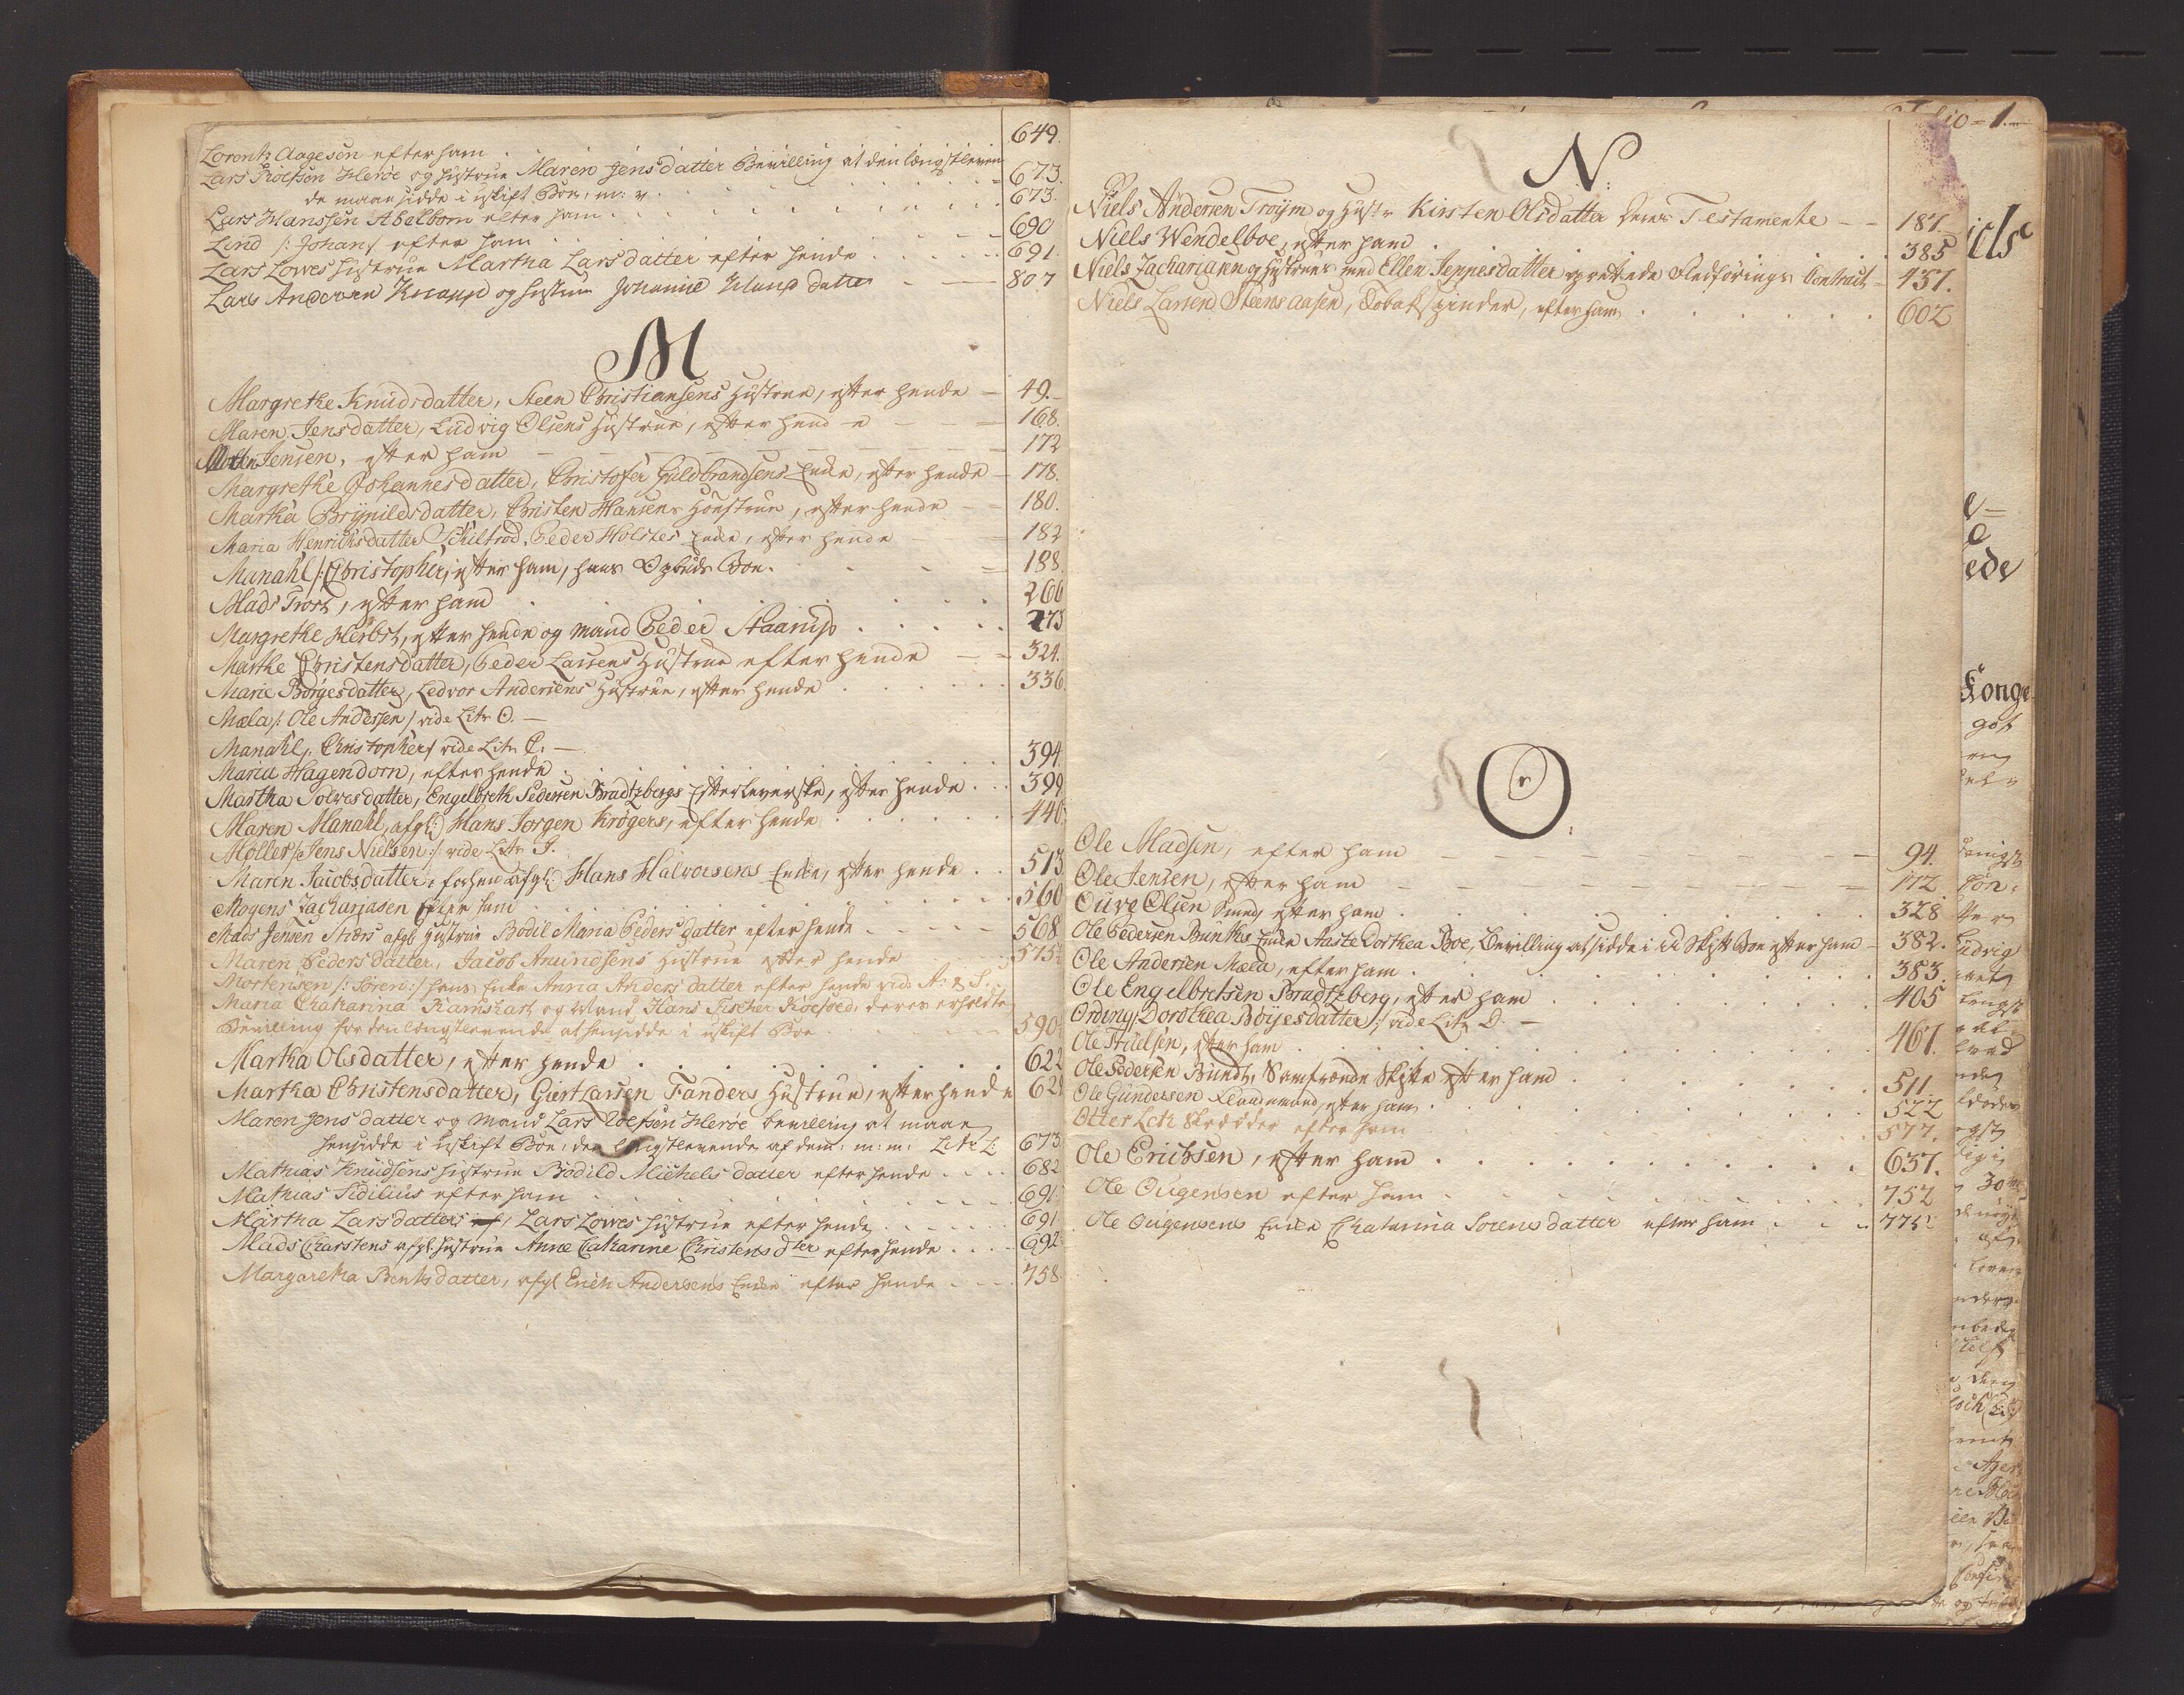 Lorentz Aagesen efter ham . 649.
Lars Roefsen Herøe og Hustrue Maren Jensdatter Bevilling at den længstleven
de maae sidde i uskift Boe, m: v. 673.
Lars Hanssen Abelborn efter ham 673.
Lind /: Johan /: efter ham 690
Lars Lowes Hustrue Martha Larsdatter efter hende 691.
Lars Andersen Knapp og Hustrue Johanne datter 807
M
Margrethe Knudsdatter, Steen Christiansens Hustrue, efter hende 49.
Maren Jensdatter, Ludvig Olsens Hustrue, efter hende 168.
Jensen, efter ham 172
Margrethe Johannesdatter, Christofer Guldbrandsens Enke, efter hende 178.
Martha Brynildsdatter, Christen Hansens Hustrue, efter hende 180.
Maria Henrichsdatter Schiltrod, Peder Holstes Enke, efter hende 182
Manahl /: Christopher, efter ham, hans Opbuds Boe. 188.
Mads Trost, efter ham 266
Margrethe Herbst, efter hende og Mand Peder Staarup 273
Marthe Christensdatter, Peder Larsens Hustrue efter hende 324.
Marie Börgesdatter, Ledvor Andersens Hustrue, efter hende 336.
Mæla /: Ole Andersen / vide Litr O.
Manahl /: Christopher / vide Litr C.
Maria Hagendorn, efter hende 394.
Martha Solvesdatter, Engelbreth Pedersen Bradtzbergs Efterleverske, efter hende 399
Maren Manahl, afgl: Hans Jørgen Krögers, efter hende 440.
Möller /: Jens Nielsen :/ vide Litr J.
Maren Jacobsdatter, forhen afgl: Hans Halvorsens Enke, efter hende 513
Mogens Zachariasen Efter ham 560
Mads Jensen afgl Hustrue Bodil Maria Peders datter efter hende 568
Maren Peders datter, Jacob Amundsens Hustrue efter hende 575
Mortensen /: Sören :/ hans Enke Anna Anders datter efter hende vide A: & S.
Maria Chatarina Ramshart og Mand Hans Fischer Roefved, deres erholdte
Bevilling for den længstlevende at hensidde i uskift Boe 590
Martha Olsdatter, efter hende 622
Martha Christensdatter, Giert Larsen Fanders Hustrue, efter hende 62
Maren Jens datter og Mand Lars Roefsen Herøe bevilling at maae
hensidde i uskift Boe, den længstlevende af dem: m: m: Litr L: 673
Mathias Knudsens Hustrue Bodild Michels datter efter hende 682
Mathias Sidilius efter ham 691.
Martha Larsdatter, Lars Lowes Hustrue efter hende 691
Mads Carstens afgl. Hustrue Anne Catharine Christens dter efter hende 692
Margaretha Bents datter, afgl Erich Andersens Enke efter hende 758.
Folio = 1.
N.
Niels Andersen Trøym og Hustr: Kirsten Olsdatter deres Testamente 187.
Niels Wendelboe, efter ham 385
Niels Zachariasen og Hustrues med Ellen Jeppesdatter oprettede Fledförings Contract 437.
Niels Larsen Steens aasen, Tobakspinder, efter ham 602
O.
Ole Madsen, efter ham 94.
Ole Jensen, efter ham 172.
Ouve Olsen Smed efter ham 328
Ole Pedersen Bunthes Enke Aaste Dorthea Boe, Bevilling at sidde i U Skift Boe efter ham 382.
Ole Andersen Mæla, efter ham 383.
Ole Engelbretsen Bradtzberg, efter ham 405
Ording /: Dorothea Böyesdatter :/ vide Litr D.
Ole efter ham 467.
Ole Pedersen Bundtz, Samfrænde Skifte efter ham 511.
Ole Gundersen efter ham 522
Otter Skrædder efter ham 577.
Ole Erichsen, efter ham 637.
Ole Ougensen efter ham 752
Ole Ougensens Enke Chatarina Sorens datter efter ham 775